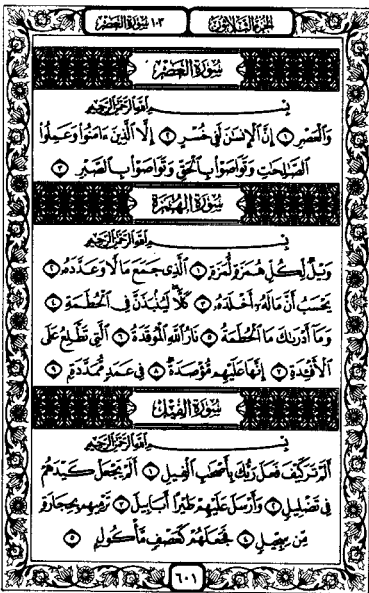 الجزء الثلاثون ١٠٣ سورة العصر
سورة العصر
بسم الله الرحمن الرحيم
وَالْعَصْرِ ١ إِنَّ الْإِنسَانَ لَفِي خُسْرٍ ٢ إِلَّا الَّذِينَ ءَامَنُوا وَعَمِلُوا
الصَّالِحَاتِ وَتَوَاصَوْا بِالْحَقِّ وَتَوَاصَوْا بِالصَّبْرِ ٣
سورة الهمزة
بسم الله الرحمن الرحيم
وَيْلٌ لِّكُلِّ هُمَزَةٍ لُّمَزَةٍ ١ الَّذِي جَمَعَ مَالًا وَعَدَّدَهُ ٢
يَحْسَبُ أَنَّ مَالَهُ أَخْلَدَهُ ٣ كَلَّا لَيُنبَذَنَّ فِي الْحُطَمَةِ ٤
وَمَا أَدْرَاكَ مَا الْحُطَمَةُ ٥ نَارُ اللَّهِ الْمُوقَدَةُ ٦ الَّتِي تَطَّلِعُ عَلَى
الْأَفْئِدَةِ ٧ إِنَّهَا عَلَيْهِم مُّؤْصَدَةٌ ٨ فِي عَمَدٍ مُّمَدَّدَةٍ ٩
سورة الفيل
بسم الله الرحمن الرحيم
أَلَمْ تَرَ كَيْفَ فَعَلَ رَبُّكَ بِأَصْحَابِ الْفِيلِ ١ أَلَمْ يَجْعَلْ كَيْدَهُمْ
فِي تَضْلِيلٍ ٢ وَأَرْسَلَ عَلَيْهِمْ طَيْرًا أَبَابِيلَ ٣ تَرْمِيهِم بِحِجَارَةٍ
مِّن سِجِّيلٍ ٤ فَجَعَلَهُمْ كَعَصْفٍ مَّأْكُولٍ ٥
٦٠١